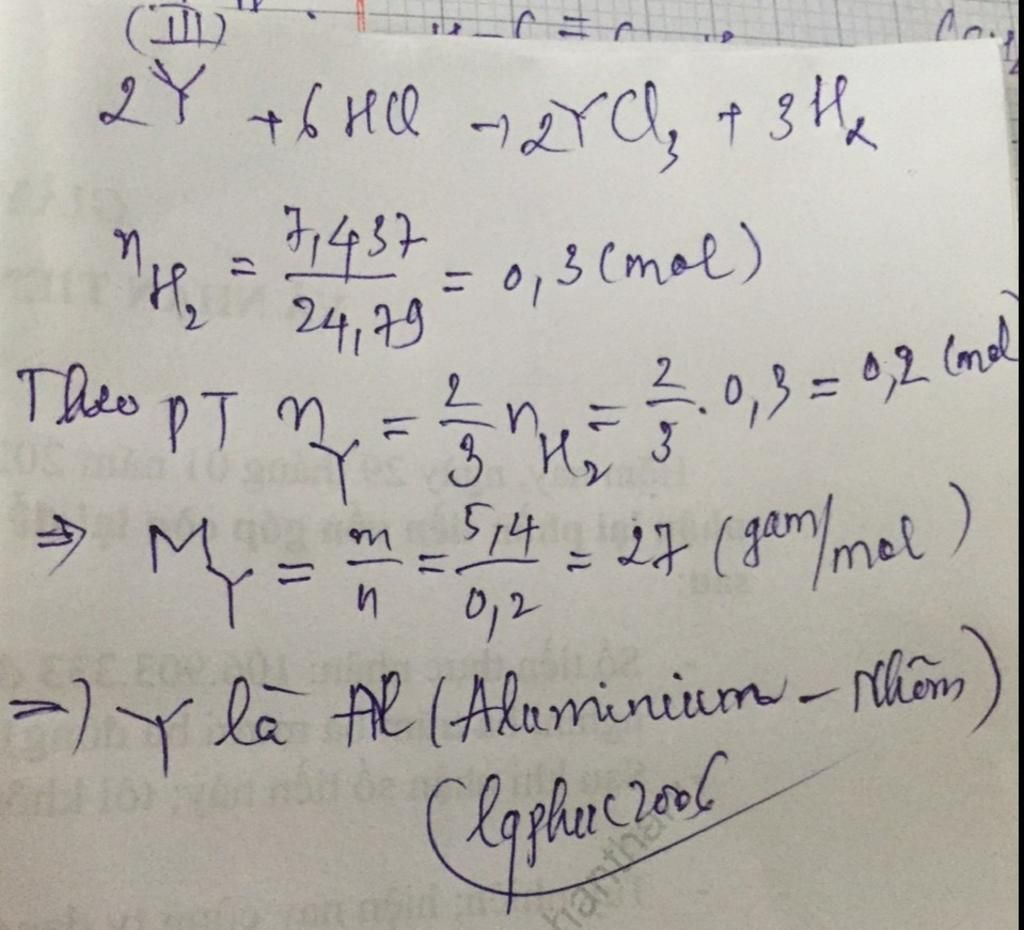 (III)
2Y + 6HCl → 2YCl₃ + 3H₂
n_H₂ = 7,437/24,79 = 0,3 (mol)
Theo PT n_Y = 2/3 n_H₂ = 2/3 . 0,3 = 0,2 (mol
⇒ M_Y = m/n = 5,4/0,2 = 27 (gam/mol)
⇒) Y là Al (Aluminium - Nhôm)
lqphuc2006